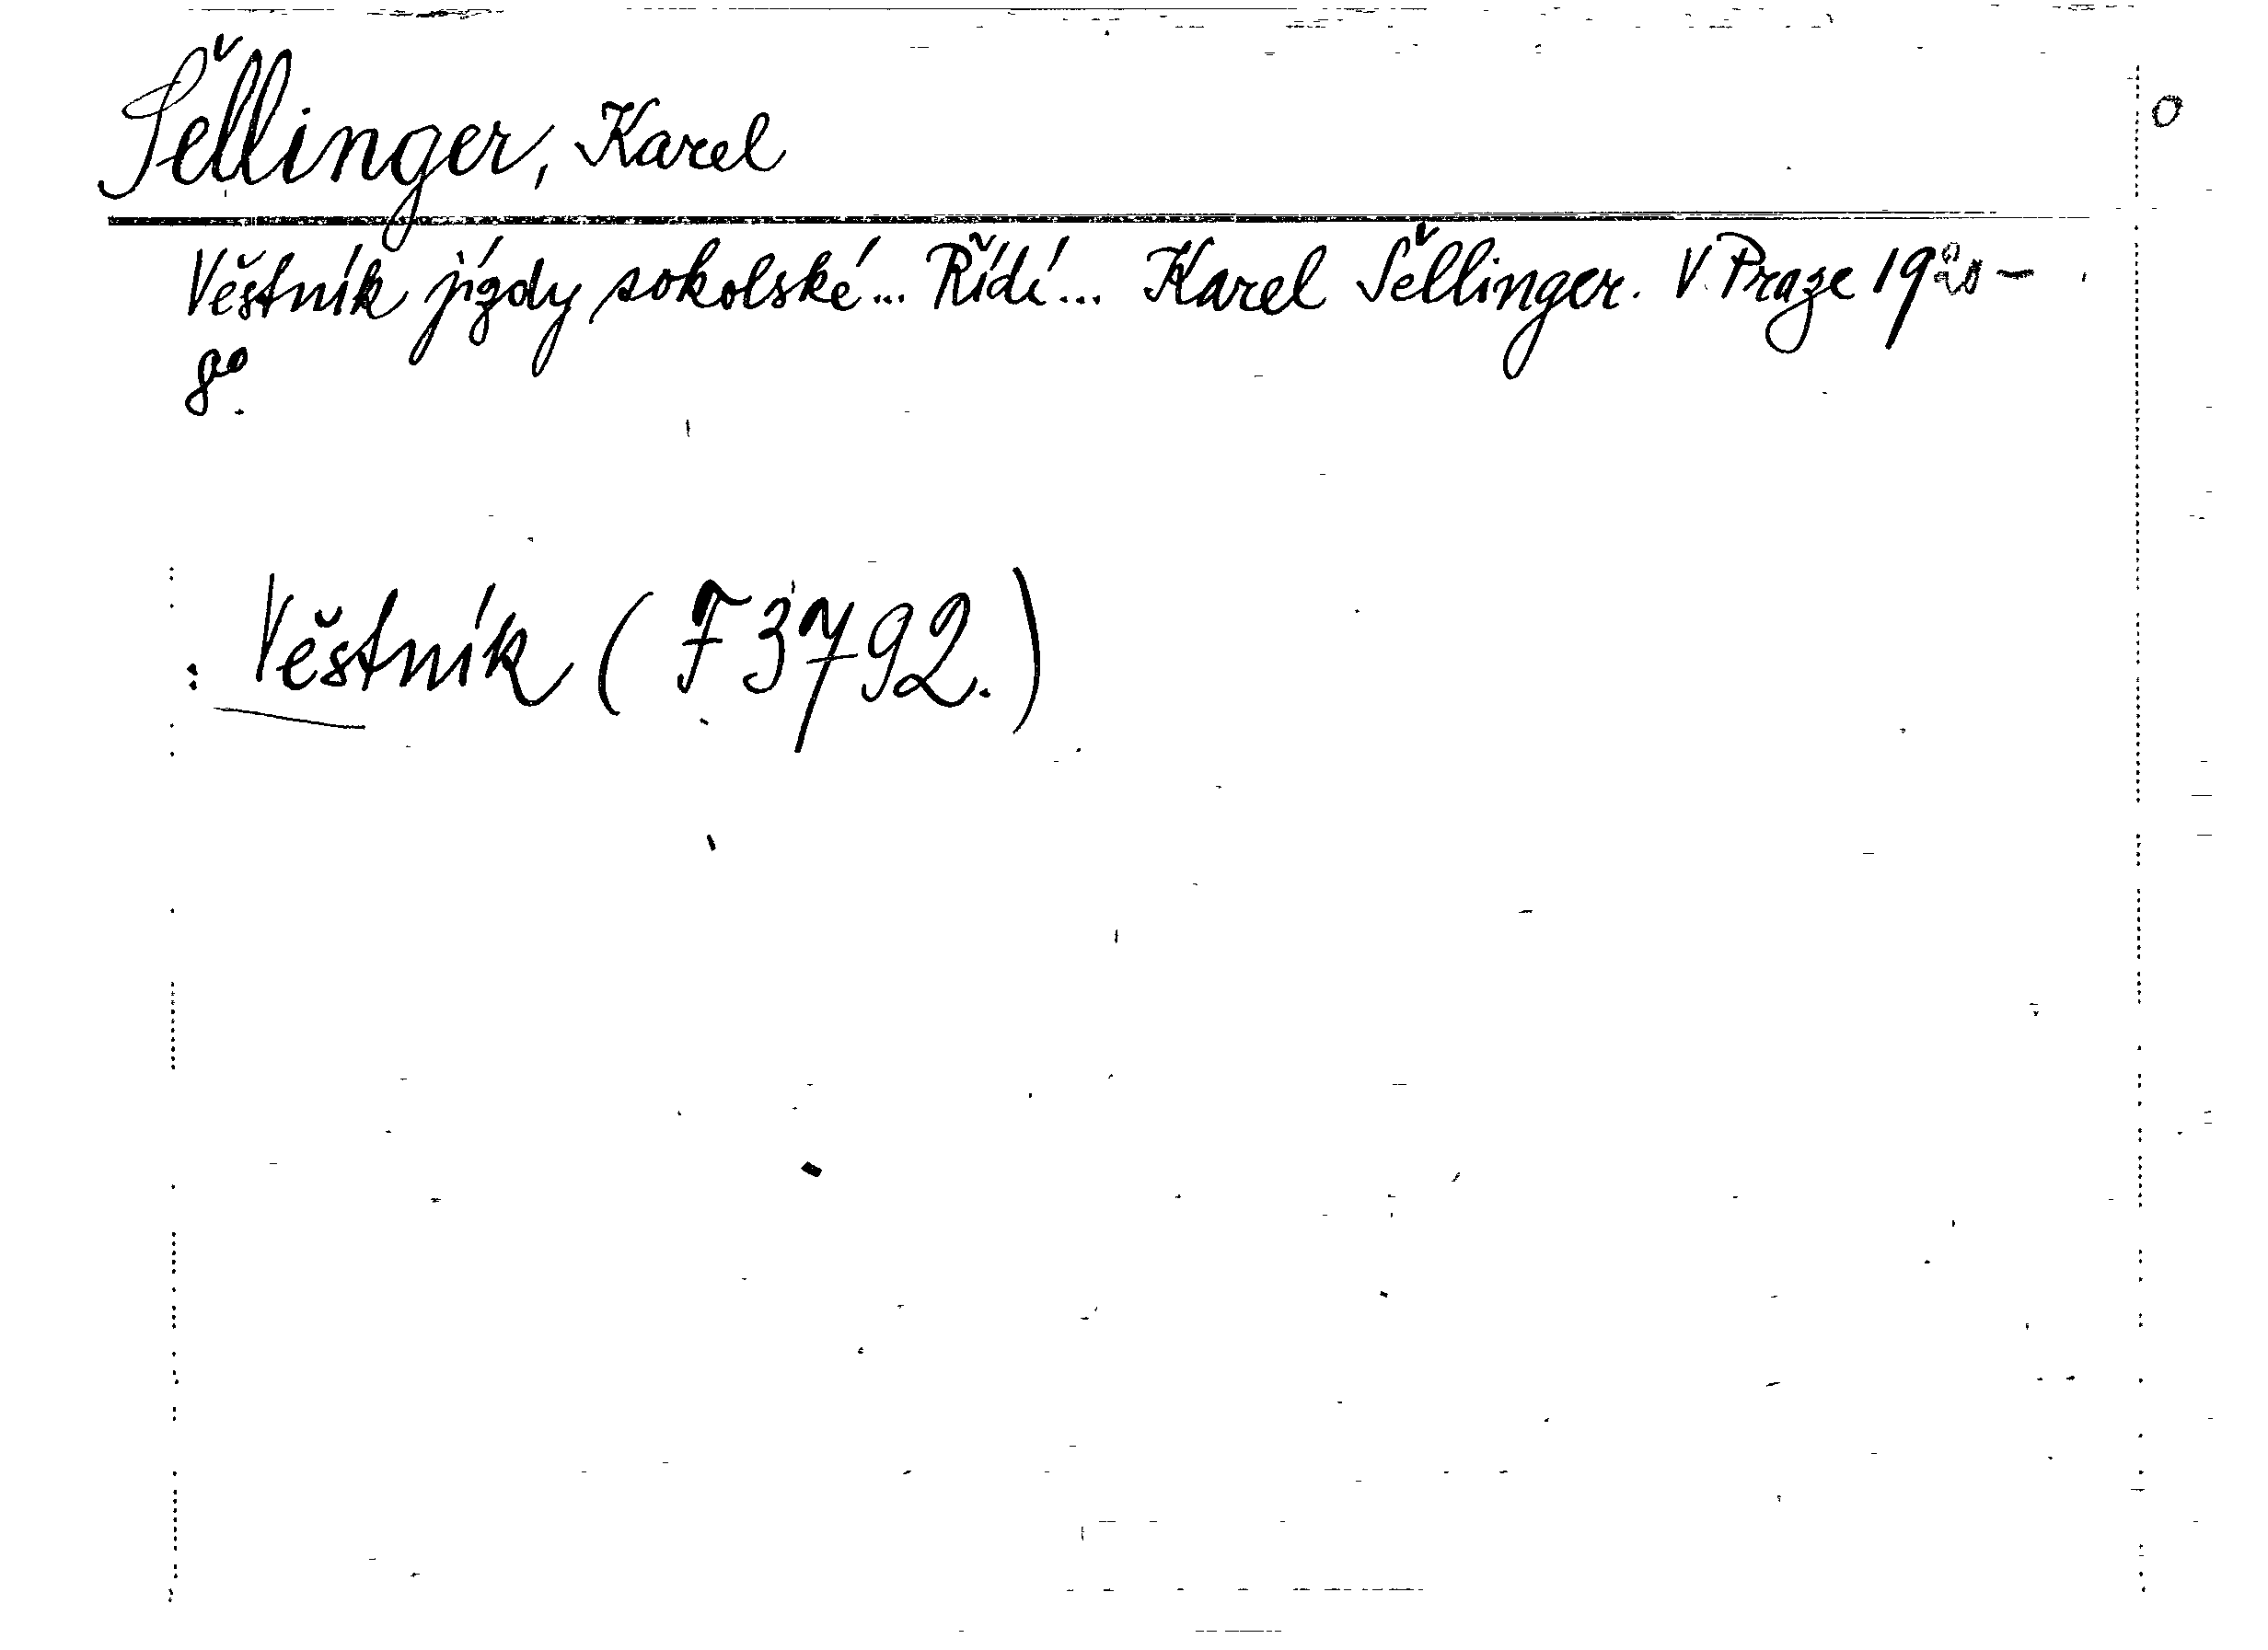 Šellinger, Karel
Věstník jízdy sokolské... Řídí... Karel Šellinger. V Praze 1920 –
8°.
: Věstník (F 3792.)